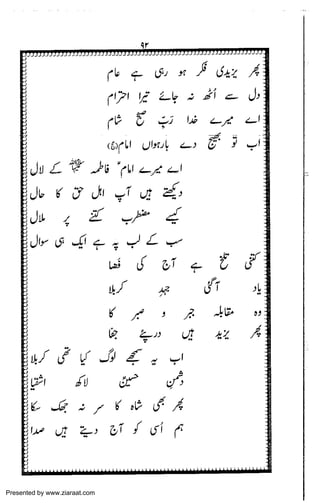 ۹۲
پھر یزیدی فکر ہو رہی ہے عام
دل سے اُٹھ نہ جائے تیرا احترام
اے میرے خدا رَبِّ صبح شام
اب تُو بھیج دے بارہواں امام(ع)
اے میرے امام فاطمہ کے لال
دیکھئے ہیں آپ اہل حق کا حال
کیسے مضطرب کتنے پر ملال
سب کے لب پہ ہے ایک ہی سوال
کتنی تلخ ہے آج کی فضا
یاد آگئی جہدِ کربلا
وہ مقابلہ جبر و صبر کا
پھر یزید ہیں درپئے جفا
اب یہ سمجھے لوگ کیا تھی کربلا
دشمنِ حسینؑ لاکھ اشقیا
پھر بھی شاہ کا سر نہ جھک سکا
ہم اُسی کو آج دیتے ہیں صدا
Presented by www.ziaraat.com